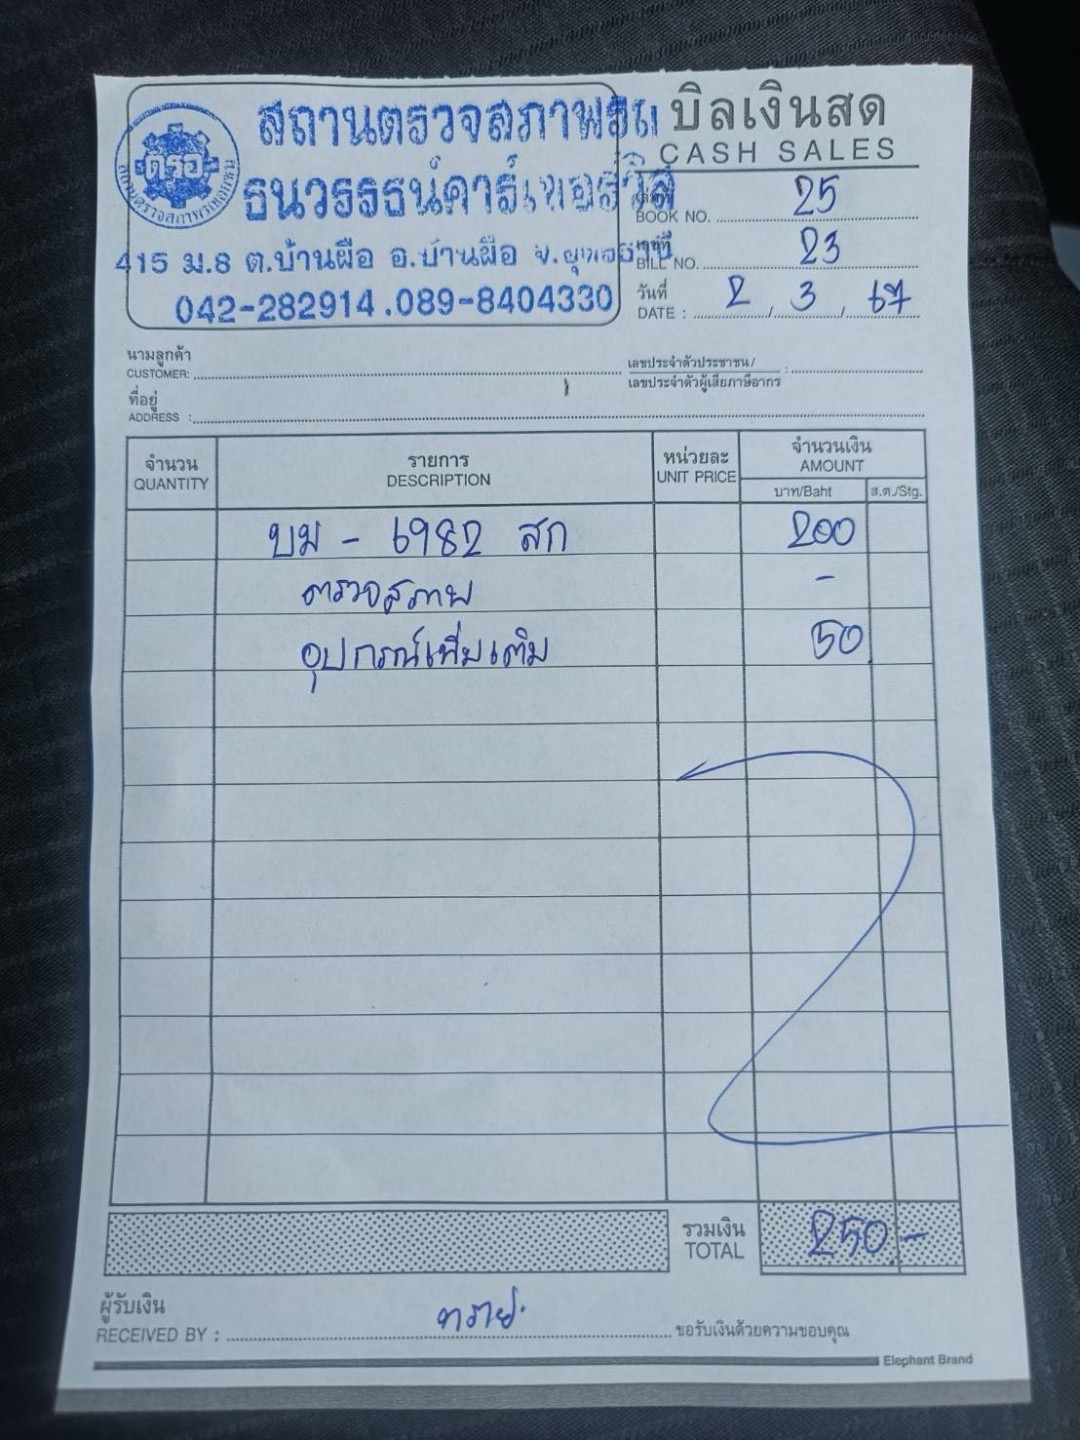 สถานตรวจสภาพรถ
ธนวรรธน์คาร์เซอร์วิส
ตรอ
สถานตรวจสภาพรถเอกชน
415 ม.8 ต.บ้านผือ อ.บ้านผือ จ.อุดรธานี
042-282914.089-8404330
บิลเงินสด
CASH SALES
เล่มที่
BOOK NO. 25
เลขที่
BILL NO. 23
วันที่
DATE : 2 / 3 / 67
นามลูกค้า
CUSTOMER:
เลขประจำตัวประชาชน/
เลขประจำตัวผู้เสียภาษีอากร :
ที่อยู่
ADDRESS :
จำนวน รายการ หน่วยละ จำนวนเงิน
QUANTITY DESCRIPTION UNIT PRICE AMOUNT
บาท/Baht ส.ต./Stg.
บม - 6982 สก 200
ตรวจสภาพ -
อุปกรณ์เพิ่มเติม 50
รวมเงิน
TOTAL 250.-
ผู้รับเงิน
RECEIVED BY : ทราย ขอรับเงินด้วยความขอบคุณ
Elephant Brand